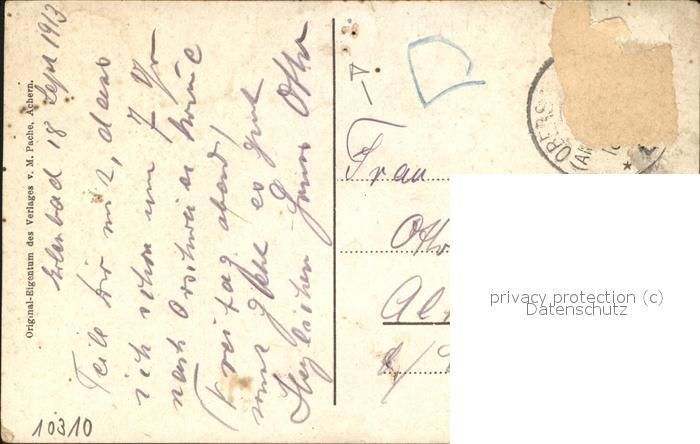 Original-Eigentum des Verlages v. M. Pache, Achern.
Erlenbad 18 Sept 1913
Teile dir mit, dass
ich schon um 7 Uhr
nach
Freitag abend
sonst geht es gut
Herzlichen Gruss Otto
D
OBERS
Frau
Otto
Al
10310
privacy protection (c)
Datenschutz